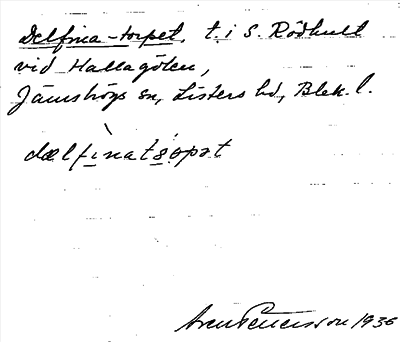 Delfina-torpet, t. i S. Rödhult
vid Hallagölen,
Jämshögs sn, Listers hd, Blek. l.
dælfìnatså̤pət
Petersson 1936